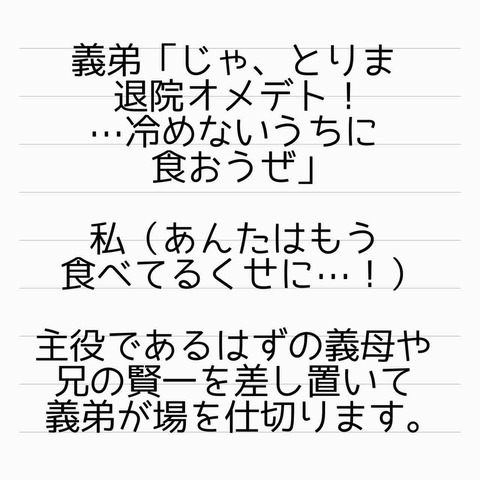 義弟「じゃ、とりま
退院オメデト！
…冷めないうちに
食おうぜ」
私（あんたはもう
食べてるくせに…！）
主役であるはずの義母や
兄の賢一を差し置いて
義弟が場を仕切ります。